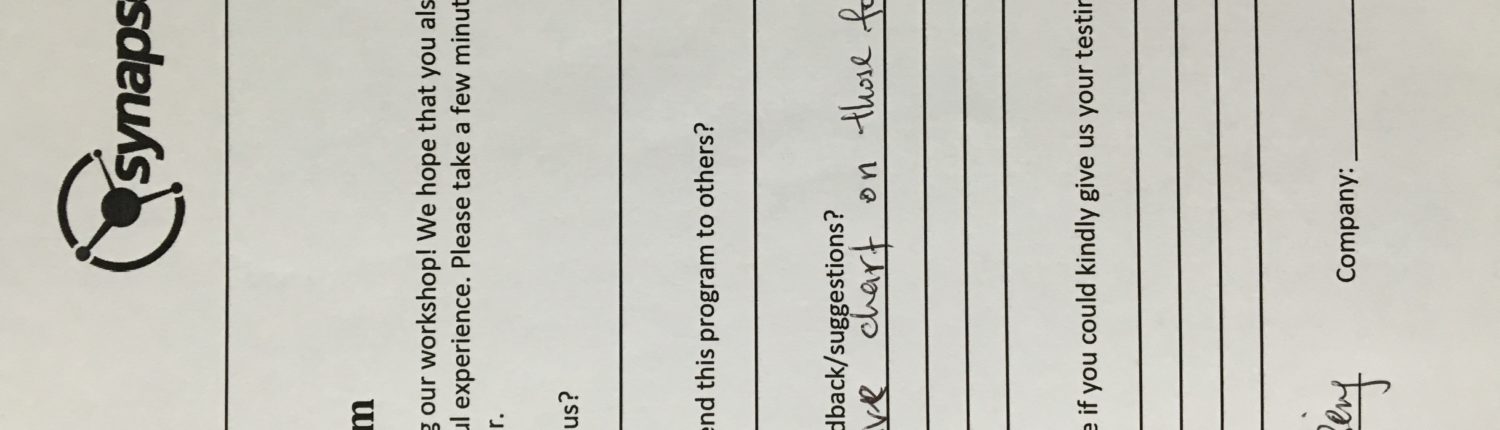 synaps
m
g our workshop! We hope that you als
ul experience. Please take a few minut
r.
us?
end this program to others?
dback/suggestions?
ve chart on those fo
e if you could kindly give us your testin
Company: